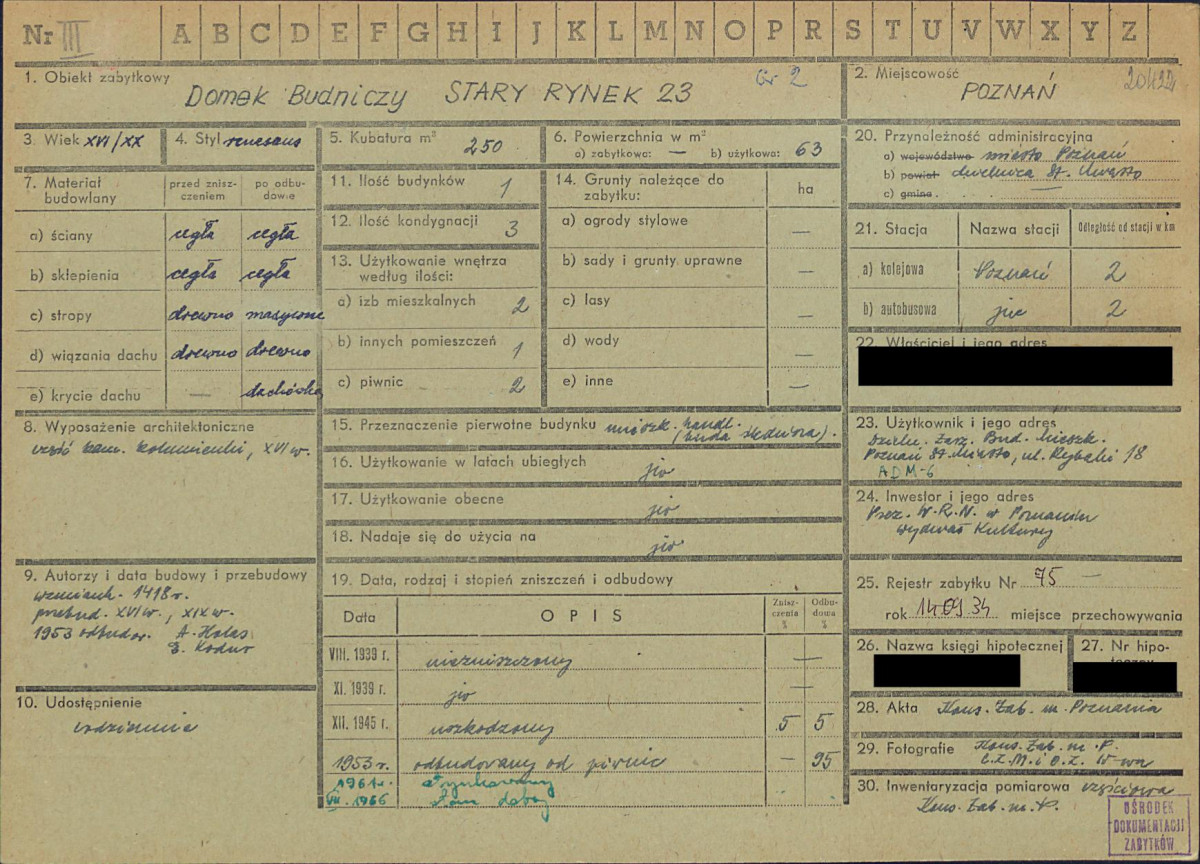 Nr III A B C D E F G H I J K L M N O P R S T U V W X Y Z
1. Obiekt zabytkowy
Domek Budniczy STARY RYNEK 23
Gr 2
2. Miejscowość
POZNAŃ
3. Wiek XVI/XX
4. Styl renesans
5. Kubatura m³ 250
6. Powierzchnia w m²
a) zabytkowa: — b) użytkowa: 63
7. Materiał budowlany
przed znisz-
czeniem
po odbu-
dowie
a) ściany cegła cegła
b) sklepienia cegła cegła
c) stropy drewno masywne
d) wiązania dachu drewno drewno
e) krycie dachu — dachówka
8. Wyposażenie architektoniczne
część kam. kolumienki, XVI w.
9. Autorzy i data budowy i przebudowy
wzmiank. 1418 r.
przebud. XVI w., XIX w.
1953 odbudow. A. Holas
10. Udostępnienie
codziennie
11. Ilość budynków 1
12. Ilość kondygnacji 3
13. Użytkowanie wnętrza
według ilości:
a) izb mieszkalnych 2
b) innych pomieszczeń 1
c) piwnic 2
14. Grunty należące do
zabytku:
ha
a) ogrody stylowe —
b) sady i grunty uprawne —
c) lasy —
d) wody —
e) inne —
15. Przeznaczenie pierwotne budynku mieszk. handl.
(buda śledziowa).
16. Użytkowanie w latach ubiegłych jw
17. Użytkowanie obecne jw
18. Nadaje się do użycia na jw
19. Data, rodzaj i stopień zniszczeń i odbudowy
Data
OPIS
Znisz-
czenia
%
Odbu-
dowa
%
VIII. 1939 r. niezniszczony —
XI. 1939 r. jw —
XII. 1945 r. uszkodzony 5 5
1953 r. odbudowany od piwnic — 95
1961 r. otynkowany
VII. 1966 stan dobry
20. Przynależność administracyjna
a) województwo miasto Poznań
b) powiat dzielnica St. Miasto
c) gmina —
21. Stacja
Nazwa stacji
Odległość od stacji w km
a) kolejowa Poznań 2
b) autobusowa jw 2
22. Właściciel i jego adres
23. Użytkownik i jego adres
Dzieln. Zarz. Bud. Mieszk.
Poznań St. Miasto, ul. Rybaki 18
ADM-6
24. Inwestor i jego adres
Prez. W.R.N. w Poznaniu
wydział Kultury
25. Rejestr zabytku Nr 75 —
rok 14.09.34 miejsce przechowywania
26. Nazwa księgi hipotecznej
27. Nr hipo-
28. Akta Kons. Zab. m. Poznania
29. Fotografie Kons. Zab. m. P.
C.Z.M. i O.Z. W-wa
30. Inwentaryzacja pomiarowa częściowa
Kons. Zab. m. P.
OŚRODEK
DOKUMENTACJI
ZABYTKÓW